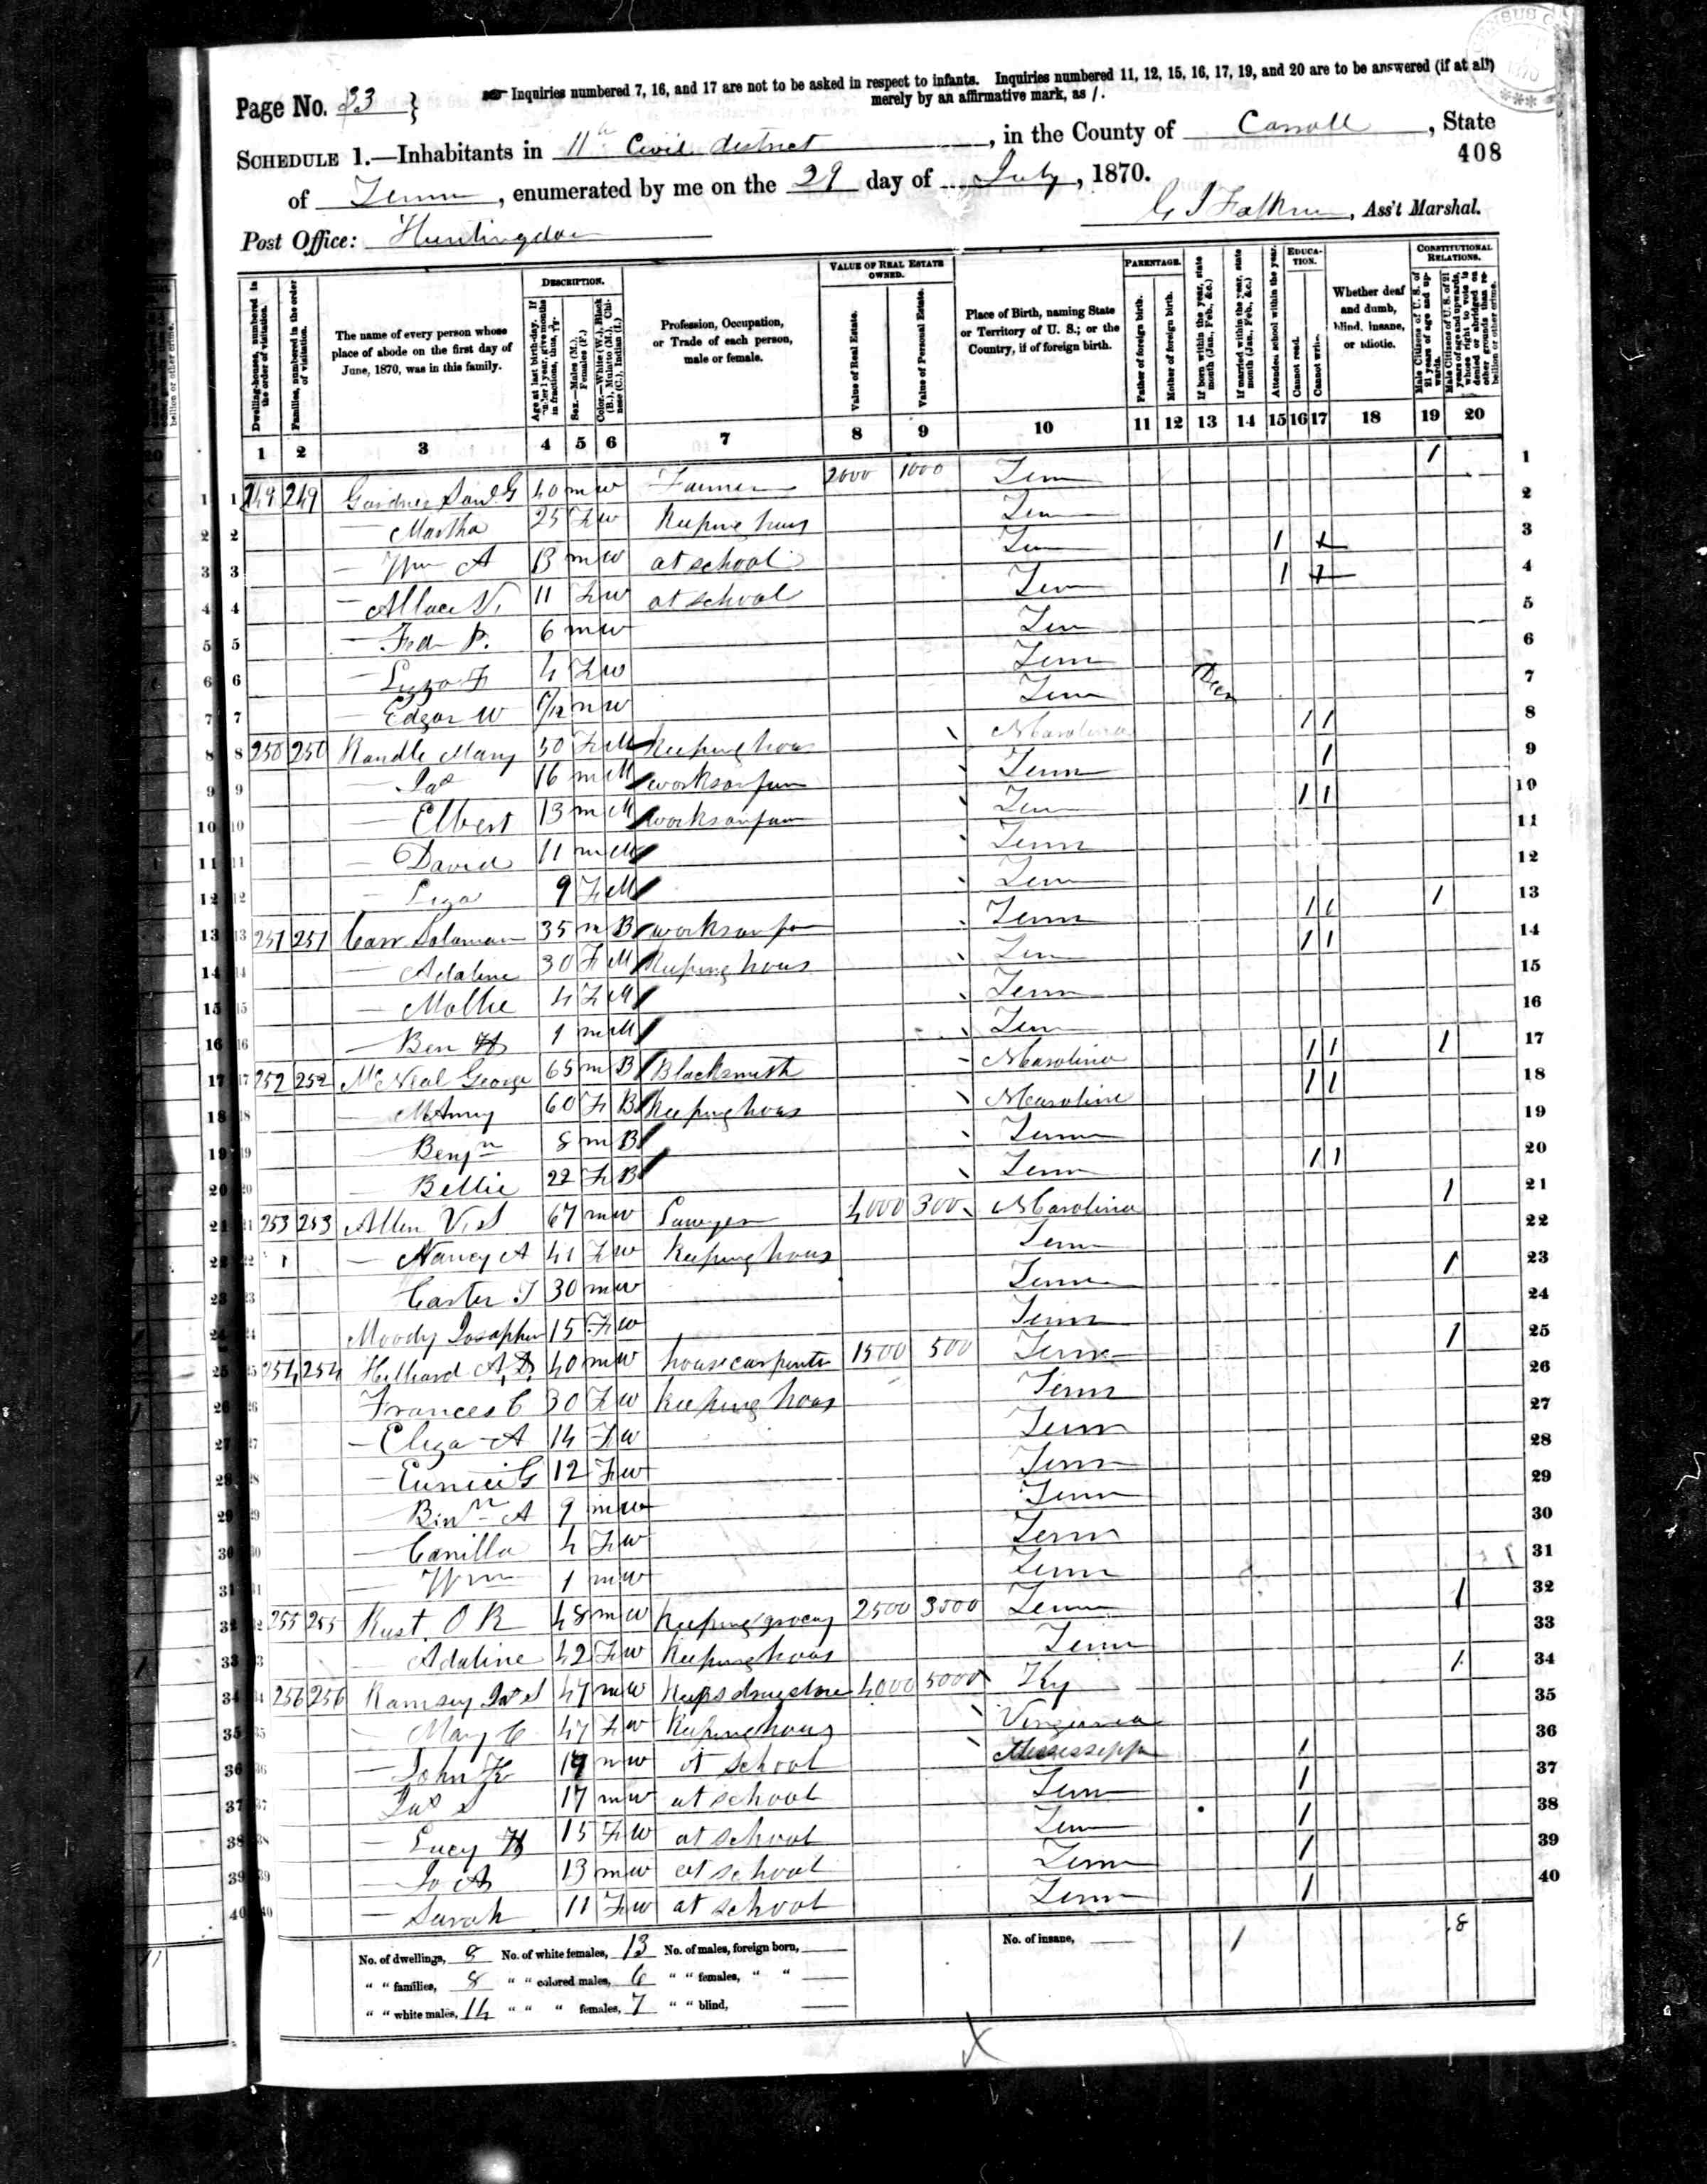 Page No. 33
Inquiries numbered 7, 16, and 17 are not to be asked in respect to infants. Inquiries numbered 11, 12, 15, 16, 17, 19, and 20 are to be answered (if at all)
merely by an affirmative mark, as /.
SCHEDULE 1.—Inhabitants in 11th Civil district, in the County of Carroll, State
408
of Tenn, enumerated by me on the 29 day of July, 1870.
Post Office: Huntingdon
Ass't Marshal.
Dwelling-houses, numbered in the order of visitation.
Families, numbered in the order of visitation.
The name of every person whose place of abode on the first day of June, 1870, was in this family.
DESCRIPTION.
Age at last birth-day. If under 1 year, give months in fractions, thus, 3/12.
Sex.—Males (M.), Females (F.)
Color.—White (W.), Black (B.), Mulatto (M.), Chinese (C.), Indian (I.)
Profession, Occupation, or Trade of each person, male or female.
VALUE OF REAL ESTATE OWNED.
Value of Real Estate.
Value of Personal Estate.
Place of Birth, naming State or Territory of U. S.; or the Country, if of foreign birth.
PARENTAGE.
Father of foreign birth.
Mother of foreign birth.
If born within the year, state month (Jan., Feb., &c.)
If married within the year, state month (Jan., Feb., &c.)
Attended school within the year.
EDUCATION.
Cannot read.
Cannot write.
Whether deaf and dumb, blind, insane, or idiotic.
CONSTITUTIONAL RELATIONS.
Male Citizens of U. S. of 21 years of age and upwards.
Male Citizens of U. S. of 21 years of age and upwards, whose right to vote is denied or abridged on other grounds than rebellion or other crime.
1 2 3 4 5 6 7 8 9 10 11 12 13 14 15 16 17 18 19 20
1 249 249 Gardner Saml G 40 m w Farmer 2000 1000 Tenn 1 1
2 — Martha 25 F w Keeping hous Ten 2
3 — Wm A 13 m w at school Ten 1 1 3
4 — V. 11 F w at school Ten 1 1 4
5 — P. 6 m w Ten 5
6 — F 4 F w Tenn 6
7 — Edgar W 6/12 m w Tenn Dec 7
8 250 250 Randle Mary 50 F M Keeping hous N Carolina 1 1 8
9 — Jas 16 m M works on farm Tenn 1 9
10 — Elbert 13 m M works on farm Ten 1 1 10
11 — David 11 m M Tenn 11
12 — 9 F M Tenn 12
13 251 251 Carr Solaman 35 m B works on farm Tenn 1 1 1 13
14 — Adaline 30 F M Keeping hous Ten 1 1 14
15 — Mollie 4 F M Tenn 15
16 — Ben H 1 m M Ten 16
17 252 252 McNeal George 65 m B Blacksmith N Carolina 1 1 1 17
18 — 60 F B Keeping hous N Caroline 1 1 18
19 — Benjn 8 m B Tenn 19
20 — Bettie 22 F B Tenn 1 1 20
21 253 253 Allen V S 67 m w Lawyer 4000 300 N Carolina 1 21
22 — Nancy A 41 F w Keeping hous Tenn 22
23 Carter J 30 m w Tenn 1 23
24 Moody Josephen 15 F w Tenn 24
25 254 254 Hilliard A. D. 40 m w house carpenter 1500 500 Tenn 1 25
26 Frances C 30 F w Keeping hous Tenn 26
27 — Eliza A 14 F w Tenn 27
28 — Eunice G 12 F w Tenn 28
29 — A 9 m w Tenn 29
30 — Canilla 4 F w Tenn 30
31 — Wm 1 m w Tenn 31
32 255 255 Rust O R 48 m w Keeping grocery 2500 3500 Tenn 1 32
33 — Adaline 42 F w Keeping hous Tenn 33
34 256 256 Ramsey Jas S 47 m w Keeps drugstore 4000 5000 Ky 1 34
35 — Mary C 47 F w Keeping hous Virginia 35
36 — John K 19 m w at school Mississippi 1 36
37 Jas S 17 m w at school Tenn 1 37
38 — Lucy H 15 F w at school Tenn 1 38
39 — Jo A 13 m w at school Tenn 1 39
40 — Sarah 11 F w at school Tenn 1 40
No. of dwellings, 8 No. of white females, 13 No. of males, foreign born, No. of insane, 1 8
" " families, 8 " " colored males, 6 " " females, " "
" " white males, 14 " " " females, 7 " " blind,